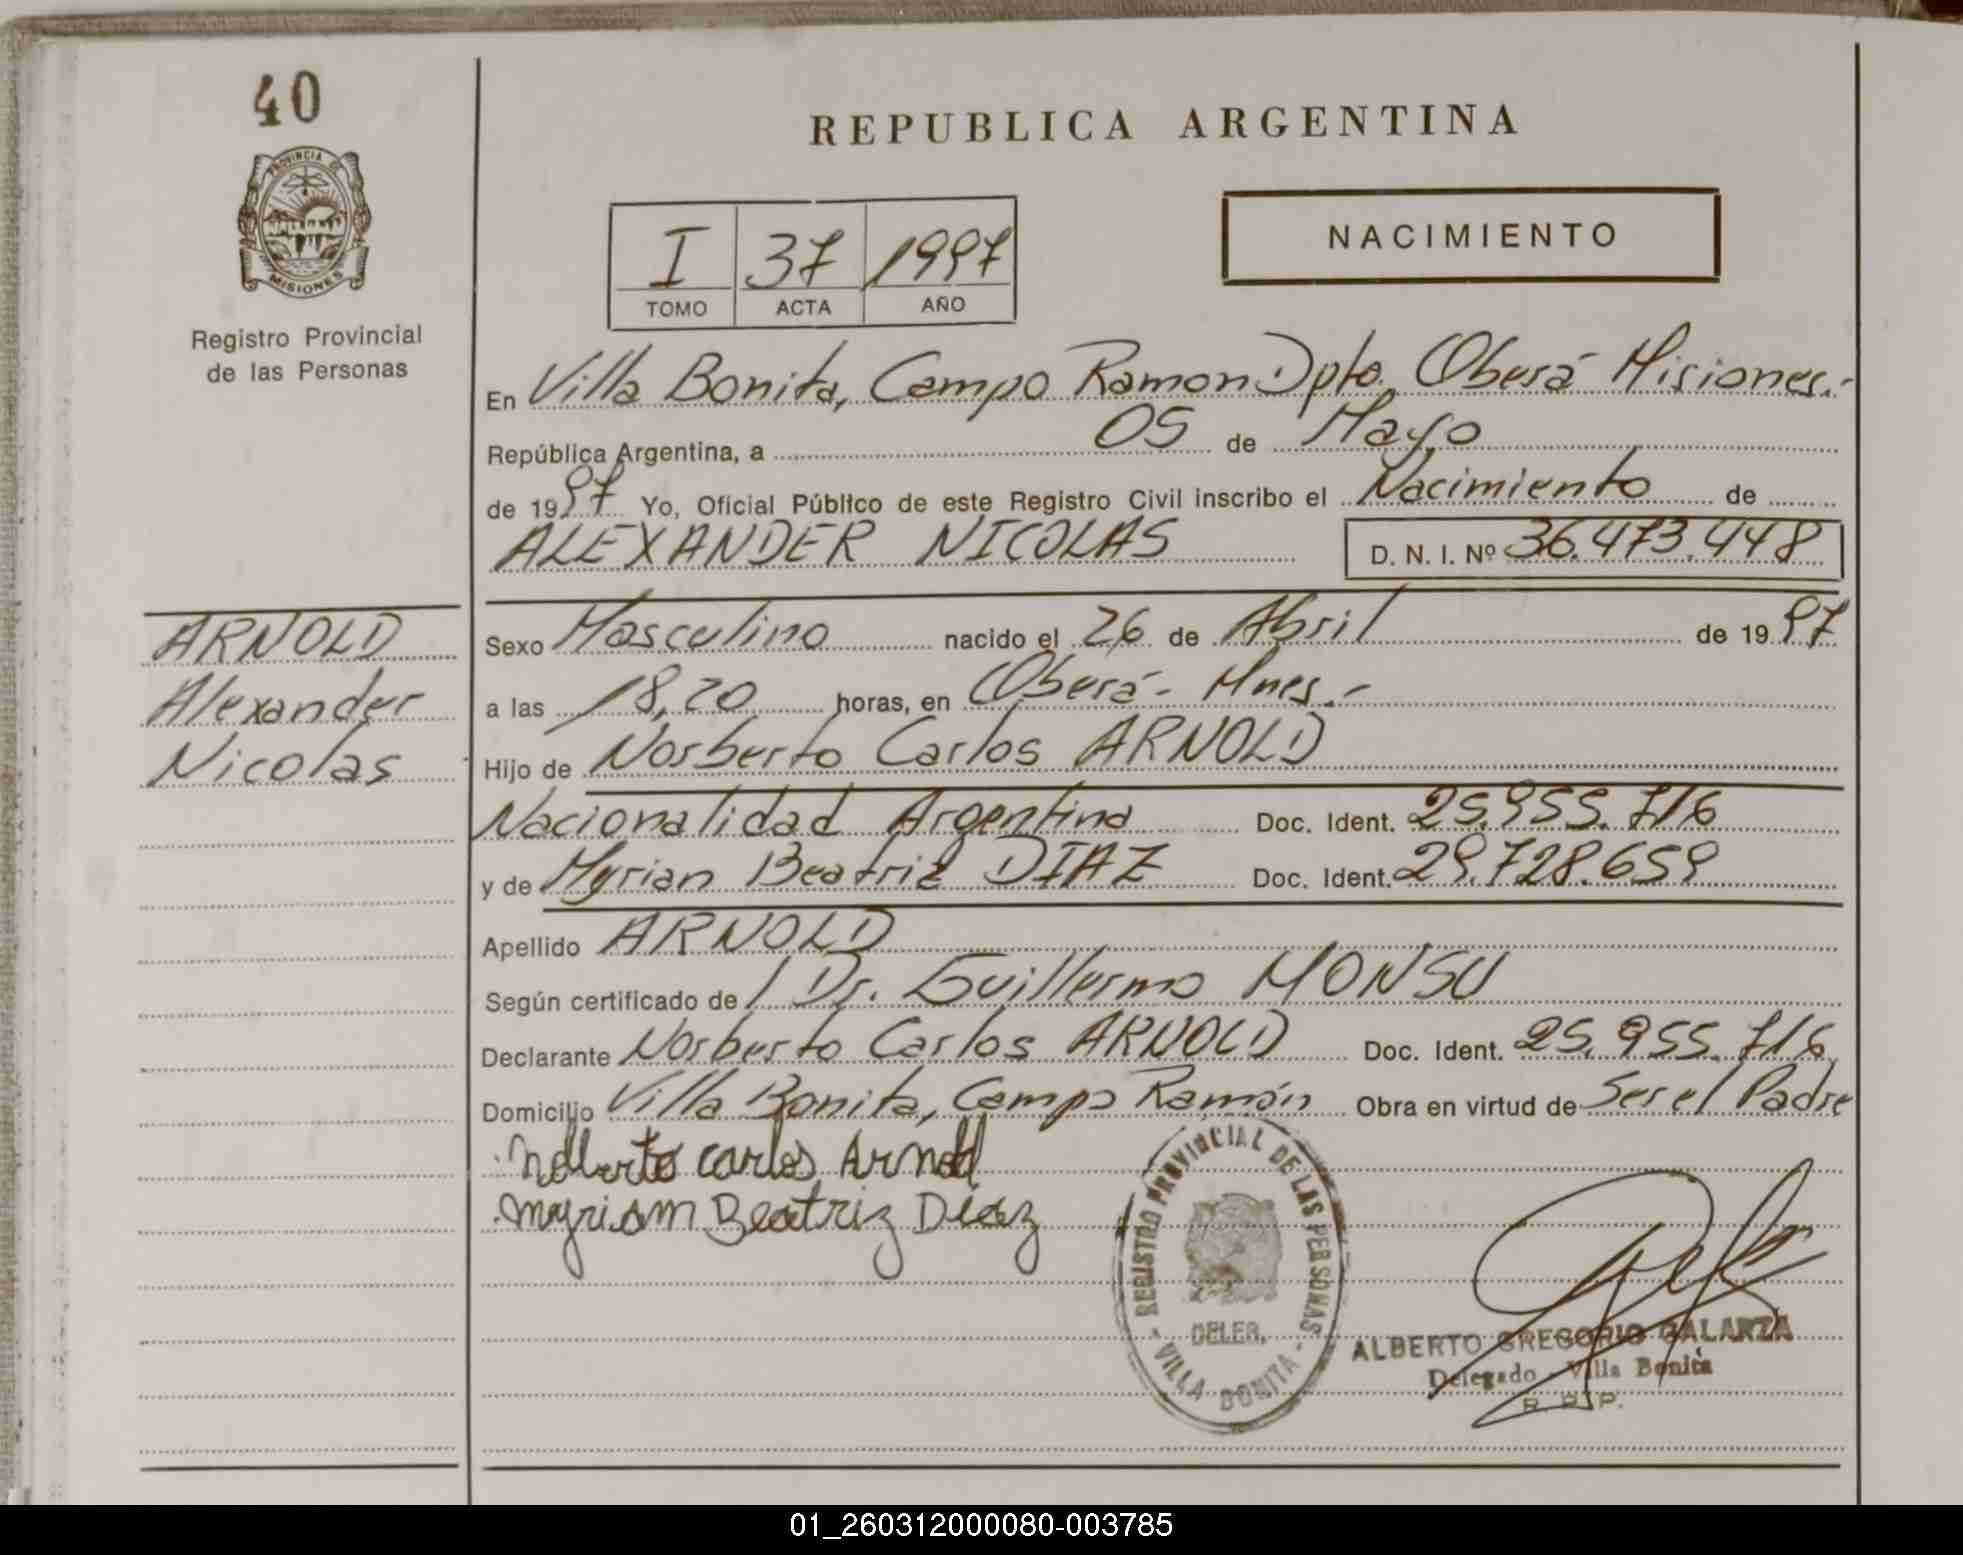 40
PROVINCIA DE
MISIONES
Registro Provincial
de las Personas
REPUBLICA ARGENTINA
I 37 1997
TOMO ACTA AÑO
NACIMIENTO
En Villa Bonita, Campo Ramon Dpto. Oberá Misiones.-
República Argentina, a 05 de Mayo
de 1997 Yo, Oficial Público de este Registro Civil inscribo el Nacimiento de
ALEXANDER NICOLAS D. N. I. Nº 36.473.448
ARNOLD
Alexander
Nicolas
Sexo Masculino nacido el 26 de Abril de 1997
a las 18,20 horas, en Oberá - Mnes.-
Hijo de Norberto Carlos ARNOLD
Nacionalidad Argentina Doc. Ident. 25.955.716
y de Myrian Beatriz DIAZ Doc. Ident. 29.728.659
Apellido ARNOLD
Según certificado de Dr. Guillermo MONSU
Declarante Norberto Carlos ARNOLD Doc. Ident. 25.955.716
Domicilio Villa Bonita, Campo Ramón Obra en virtud de Ser el Padre
Norberto Carlos Arnold
Myriam Beatriz Diaz
REGISTRO PROVINCIAL DE LAS PERSONAS
DELEG.
- VILLA BONITA -
ALBERTO GREGORIO GALARZA
Delegado - Villa Bonita
R. P. P.
01_260312000080-003785